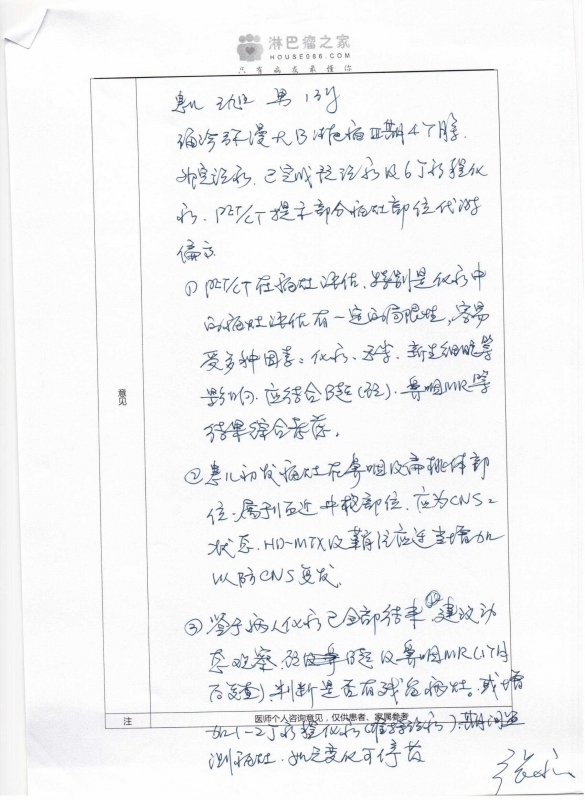 淋巴瘤之家
HOUSE086.COM
只有病友最懂你
患儿 男 13岁
确诊弥漫大B淋巴瘤Ⅲ期4个月
外院诊疗,已完成 治疗及6个疗程化
疗,PET/CT提示部分病灶部位代谢
偏高
① PET/CT在病灶评估,特别是化疗中
的病灶评估有一定的局限性,容易
受多种因素:化疗、炎学、新生细胞等
影响,应结合B超(颈)、鼻咽MR等
结果综合考虑。
② 患儿初发病灶在鼻咽及扁桃体部
位,属于靠近中枢部位,应为CNS2
状态,HD-MTX及鞘注应适当增加
以防CNS复发。
意见
③ 鉴于病人化疗已全部结束,建议动
态观察,颈 B超及鼻咽MR(1个月
后复查),判断是否有残留病灶。或增
加1-2个疗程化疗( ),期间监
测病灶,如无变化可停药
注
医师个人咨询意见,仅供患者、家属参考